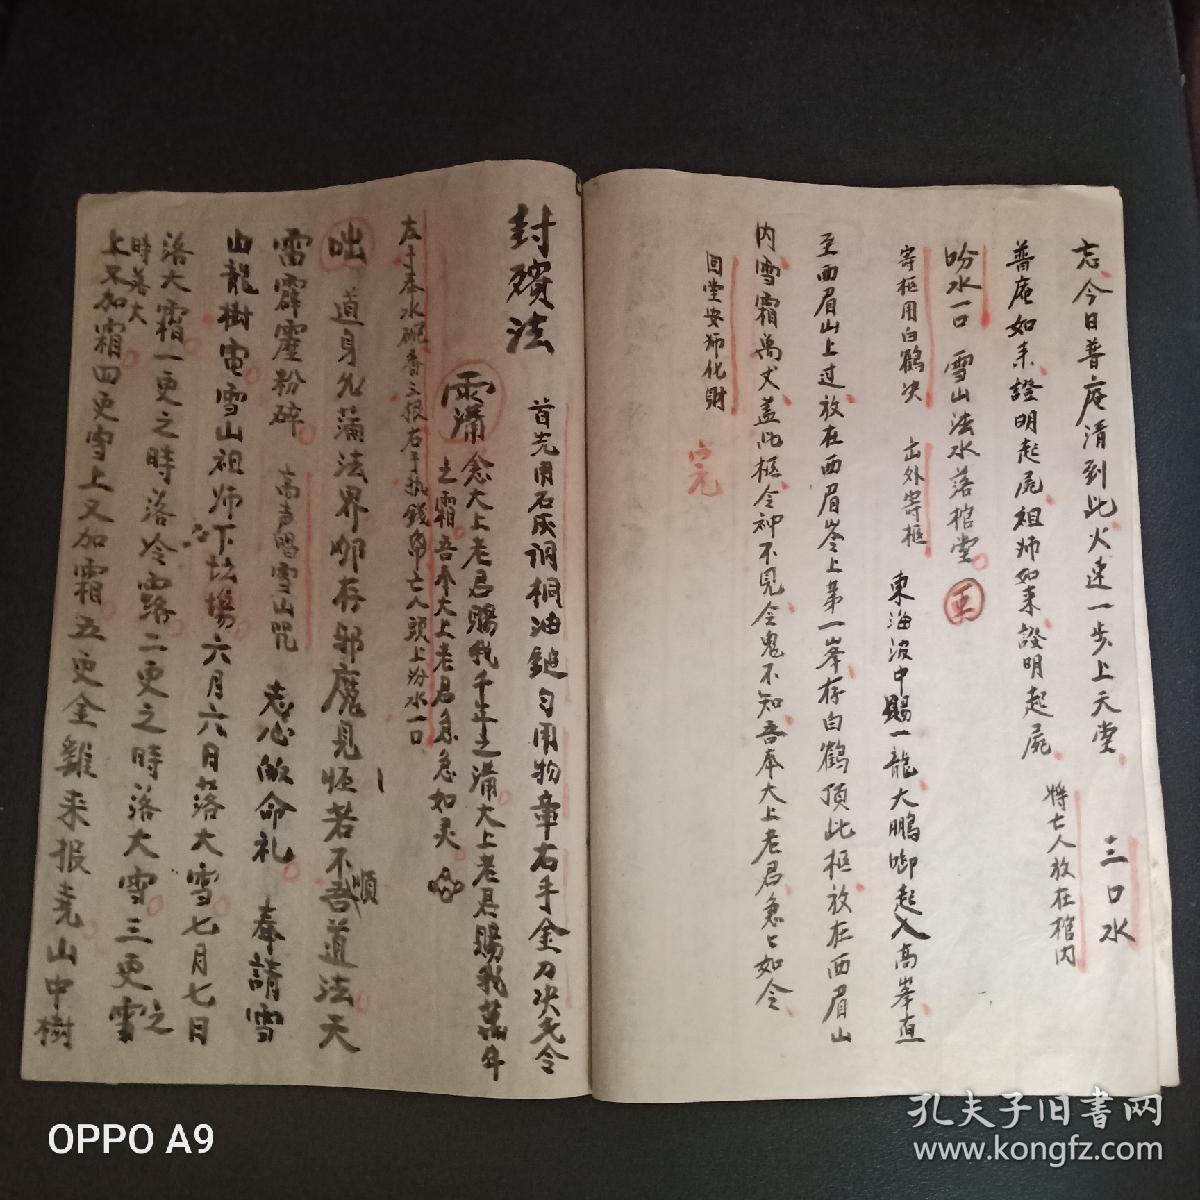 忘今日普庵清到此火速一步上天堂 三口水
將亡人放在棺內
普庵如来證明起屍祖师如来證明起屍
吩水一口 雪山法水落棺堂
寄柩用白鶴决 出外寄柩 東海波中賜一龍大鵬啣起入高峯直
至西眉山上过放在西眉岺上第一峯存白鶴頂此柩放在西眉山
内雪霜萬丈盖此柩令神不見令鬼不知吾奉大上老君急々如令
回堂安师化財 完
封殯法 首先用石灰調桐油鎚勻用物章右手金刀决毛令
念大上老君賜我千年之 大上老君賜我萬年
之霜吾奉大上老君急急如灵
左手奉水碗香三根右手执錢帛亡人頭上吩水一口
咄 道身 法界 存邪魔見怪若不順吾道法天
雷霹靂粉碎 高声唱雪山咒 志心皈命礼 奉請雪
山龍樹 雪山祖师下坛塲六月六日落大雪七月七日
落大霜一更之時落冷露二更之時落大雪三更之
時落大
雪上又加霜四更雪上又加霜五更金雞来报尭山中樹
OPPO A9
孔夫子旧書网
www.kongfz.com